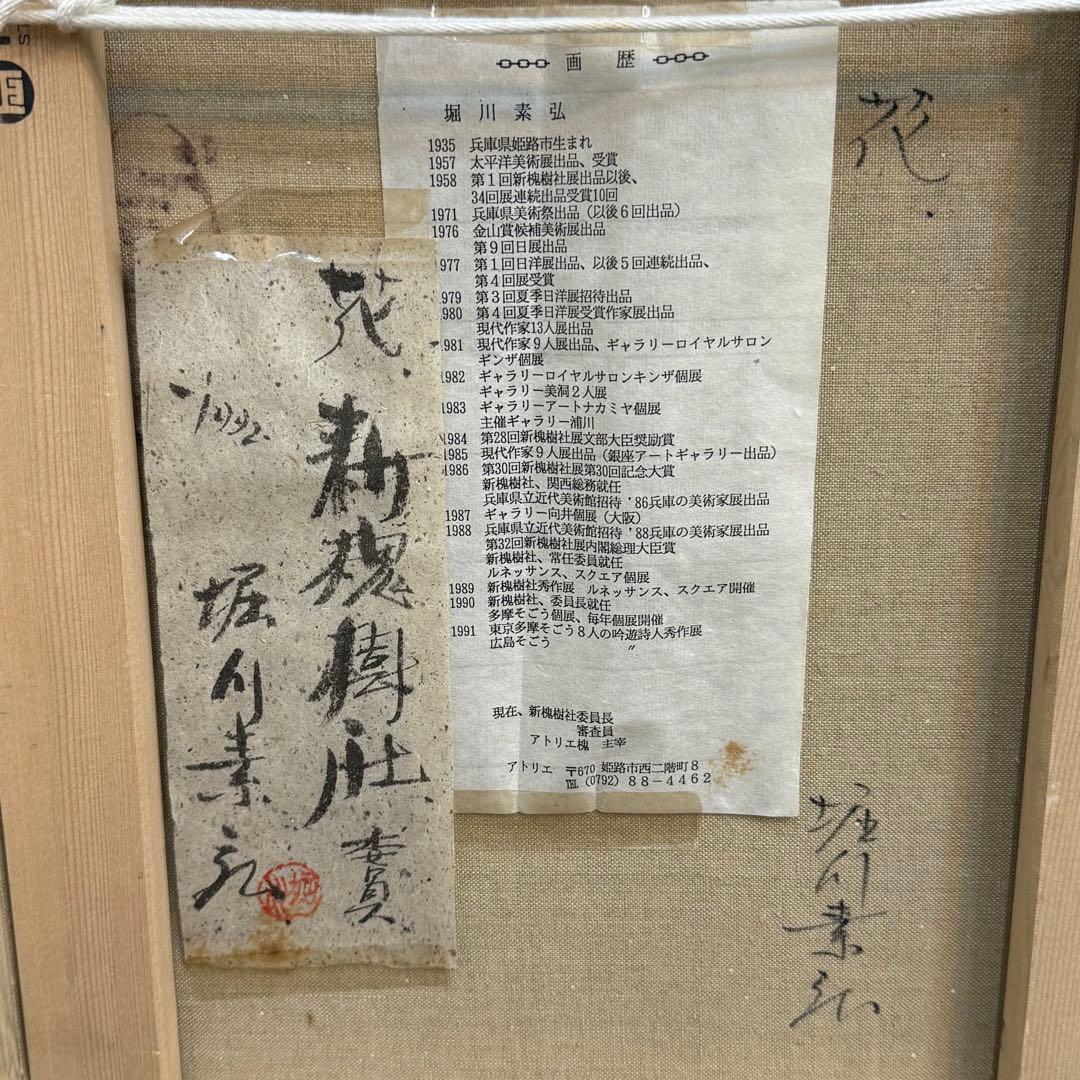 画歴
堀川素弘
1935 兵庫県姫路市生まれ
1957 太平洋美術展出品、受賞
1958 第１回新槐樹社展出品以後、
34回展連続出品受賞10回
1971 兵庫県美術祭出品（以後６回出品）
1976 金山賞候補美術展出品
第９回日展出品
1977 第１回日洋展出品、以後５回連続出品、
第４回展受賞
1979 第３回夏季日洋展招待出品
1980 第４回夏季日洋展受賞作家展出品
現代作家13人展出品
1981 現代作家９人展出品、ギャラリーロイヤルサロン
ギンザ個展
1982 ギャラリーロイヤルサロンキンザ個展
ギャラリー美洞２人展
1983 ギャラリーアートナカミヤ個展
主催ギャラリー浦川
1984 第28回新槐樹社展文部大臣奨励賞
1985 現代作家９人展出品（銀座アートギャラリー出品）
1986 第30回新槐樹社展第30回記念大賞
新槐樹社、関西総務就任
兵庫県立近代美術館招待 '86兵庫の美術家展出品
1987 ギャラリー向井個展（大阪）
1988 兵庫県立近代美術館招待 '88兵庫の美術家展出品
第32回新槐樹社展内閣総理大臣賞
新槐樹社、常任委員就任
ルネッサンス、スクエア個展
1989 新槐樹社秀作展 ルネッサンス、スクエア開催
1990 新槐樹社、委員長就任
多摩そごう個展、毎年個展開催
1991 東京多摩そごう８人の吟遊詩人秀作展
広島そごう 〃
現在、新槐樹社委員長
審査員
アトリエ槐 主宰
アトリエ 〒670 姫路市西二階町８
℡ (0792) 88-4462
花
堀川素弘
花
新槐樹社
委員
1992
堀川素弘
堀川